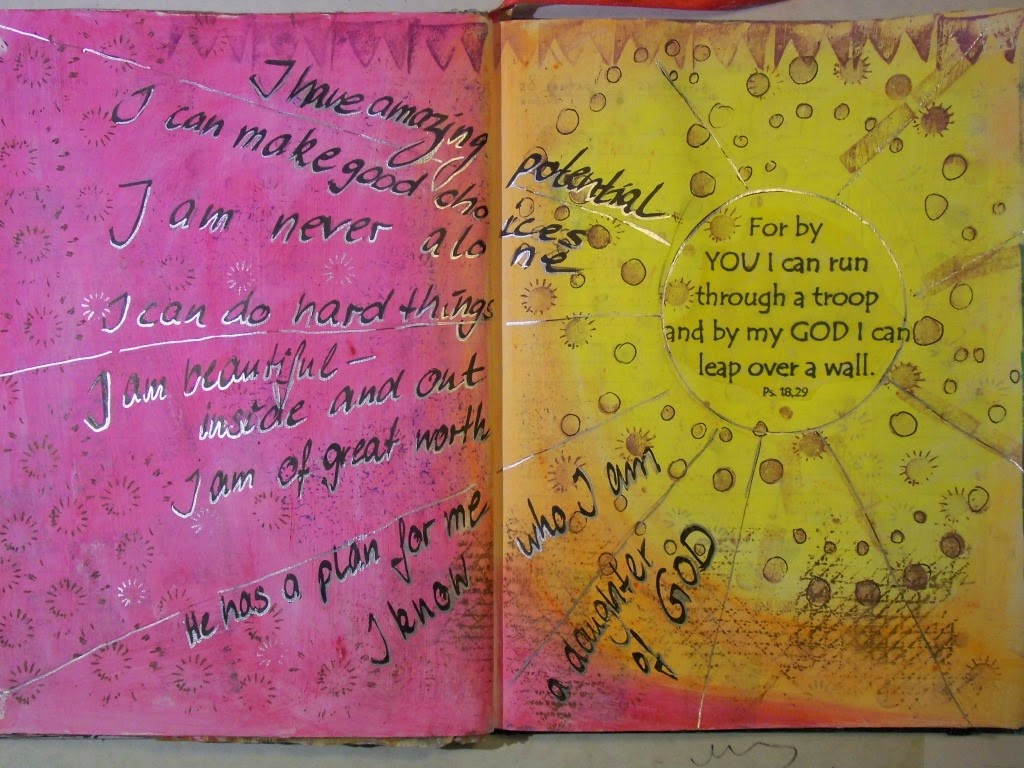 I have amazing potential
I can make good choices
I am never alone
I can do hard things
I am beautiful –
inside and out
I am of great worth
He has a plan for me
I know who I am
a daughter
of GOD
For by
YOU I can run
through a troop
and by my GOD I can
leap over a wall.
Ps. 18,29